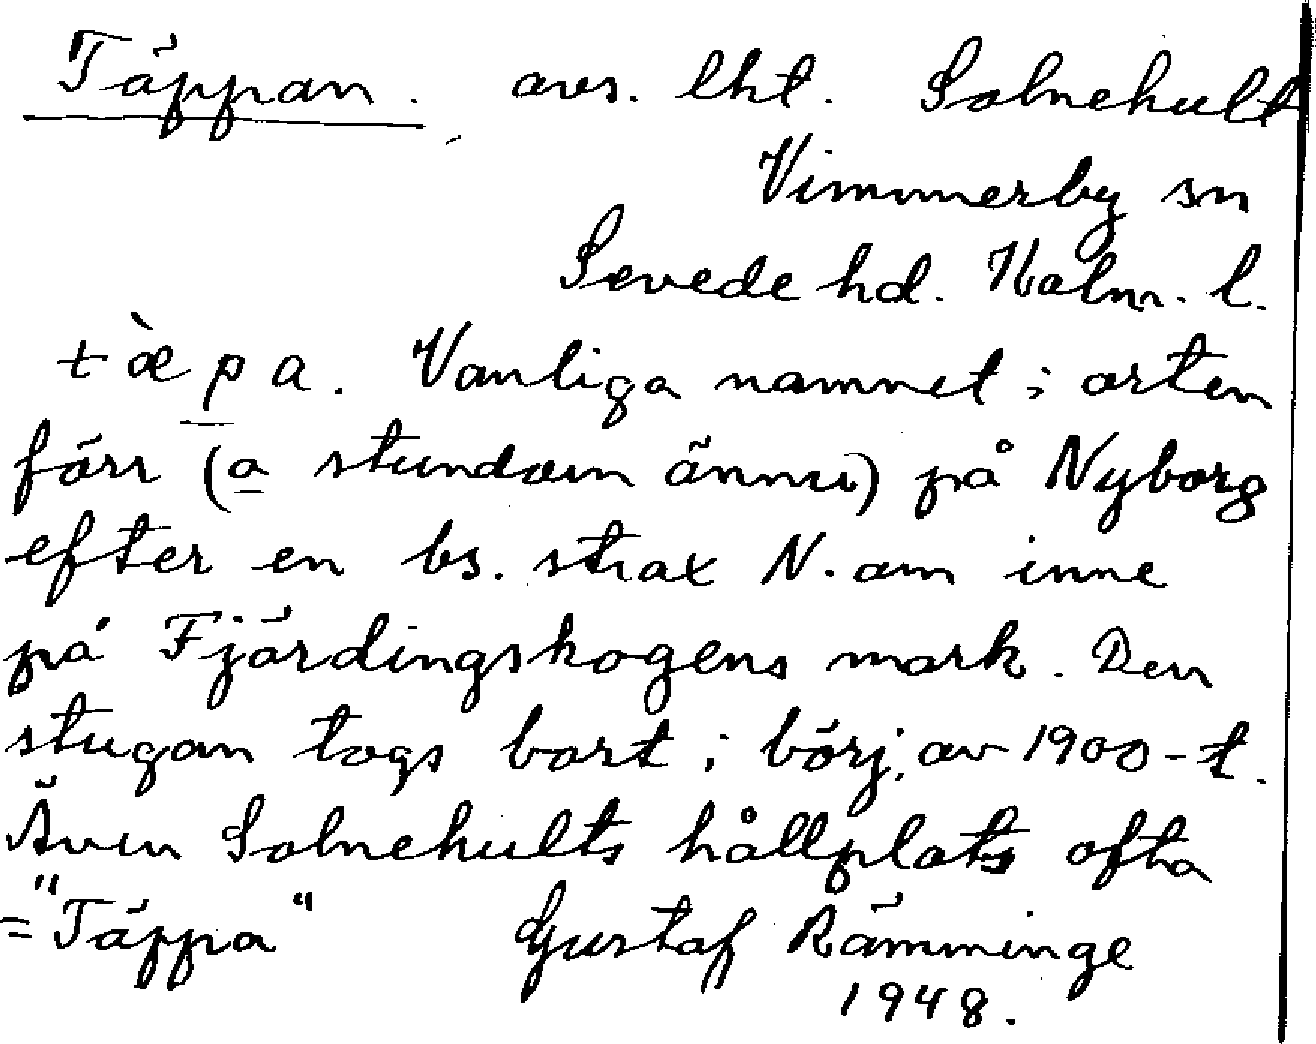 Täppan. avs. lht. Solnehult
Vimmerby sn
Sevede hd. Kalm. l.
tæ̀pa. Vanliga namnet i orten
förr (o stundom ännu) på Nyborg
efter en bs. strax N. om inne
på Fjärdingskogens mark. Den
stugan togs bort i börj. av 1900-t.
Även Solnehults hållplats ofta
="Täppa" Gustaf Rämminge
1948.